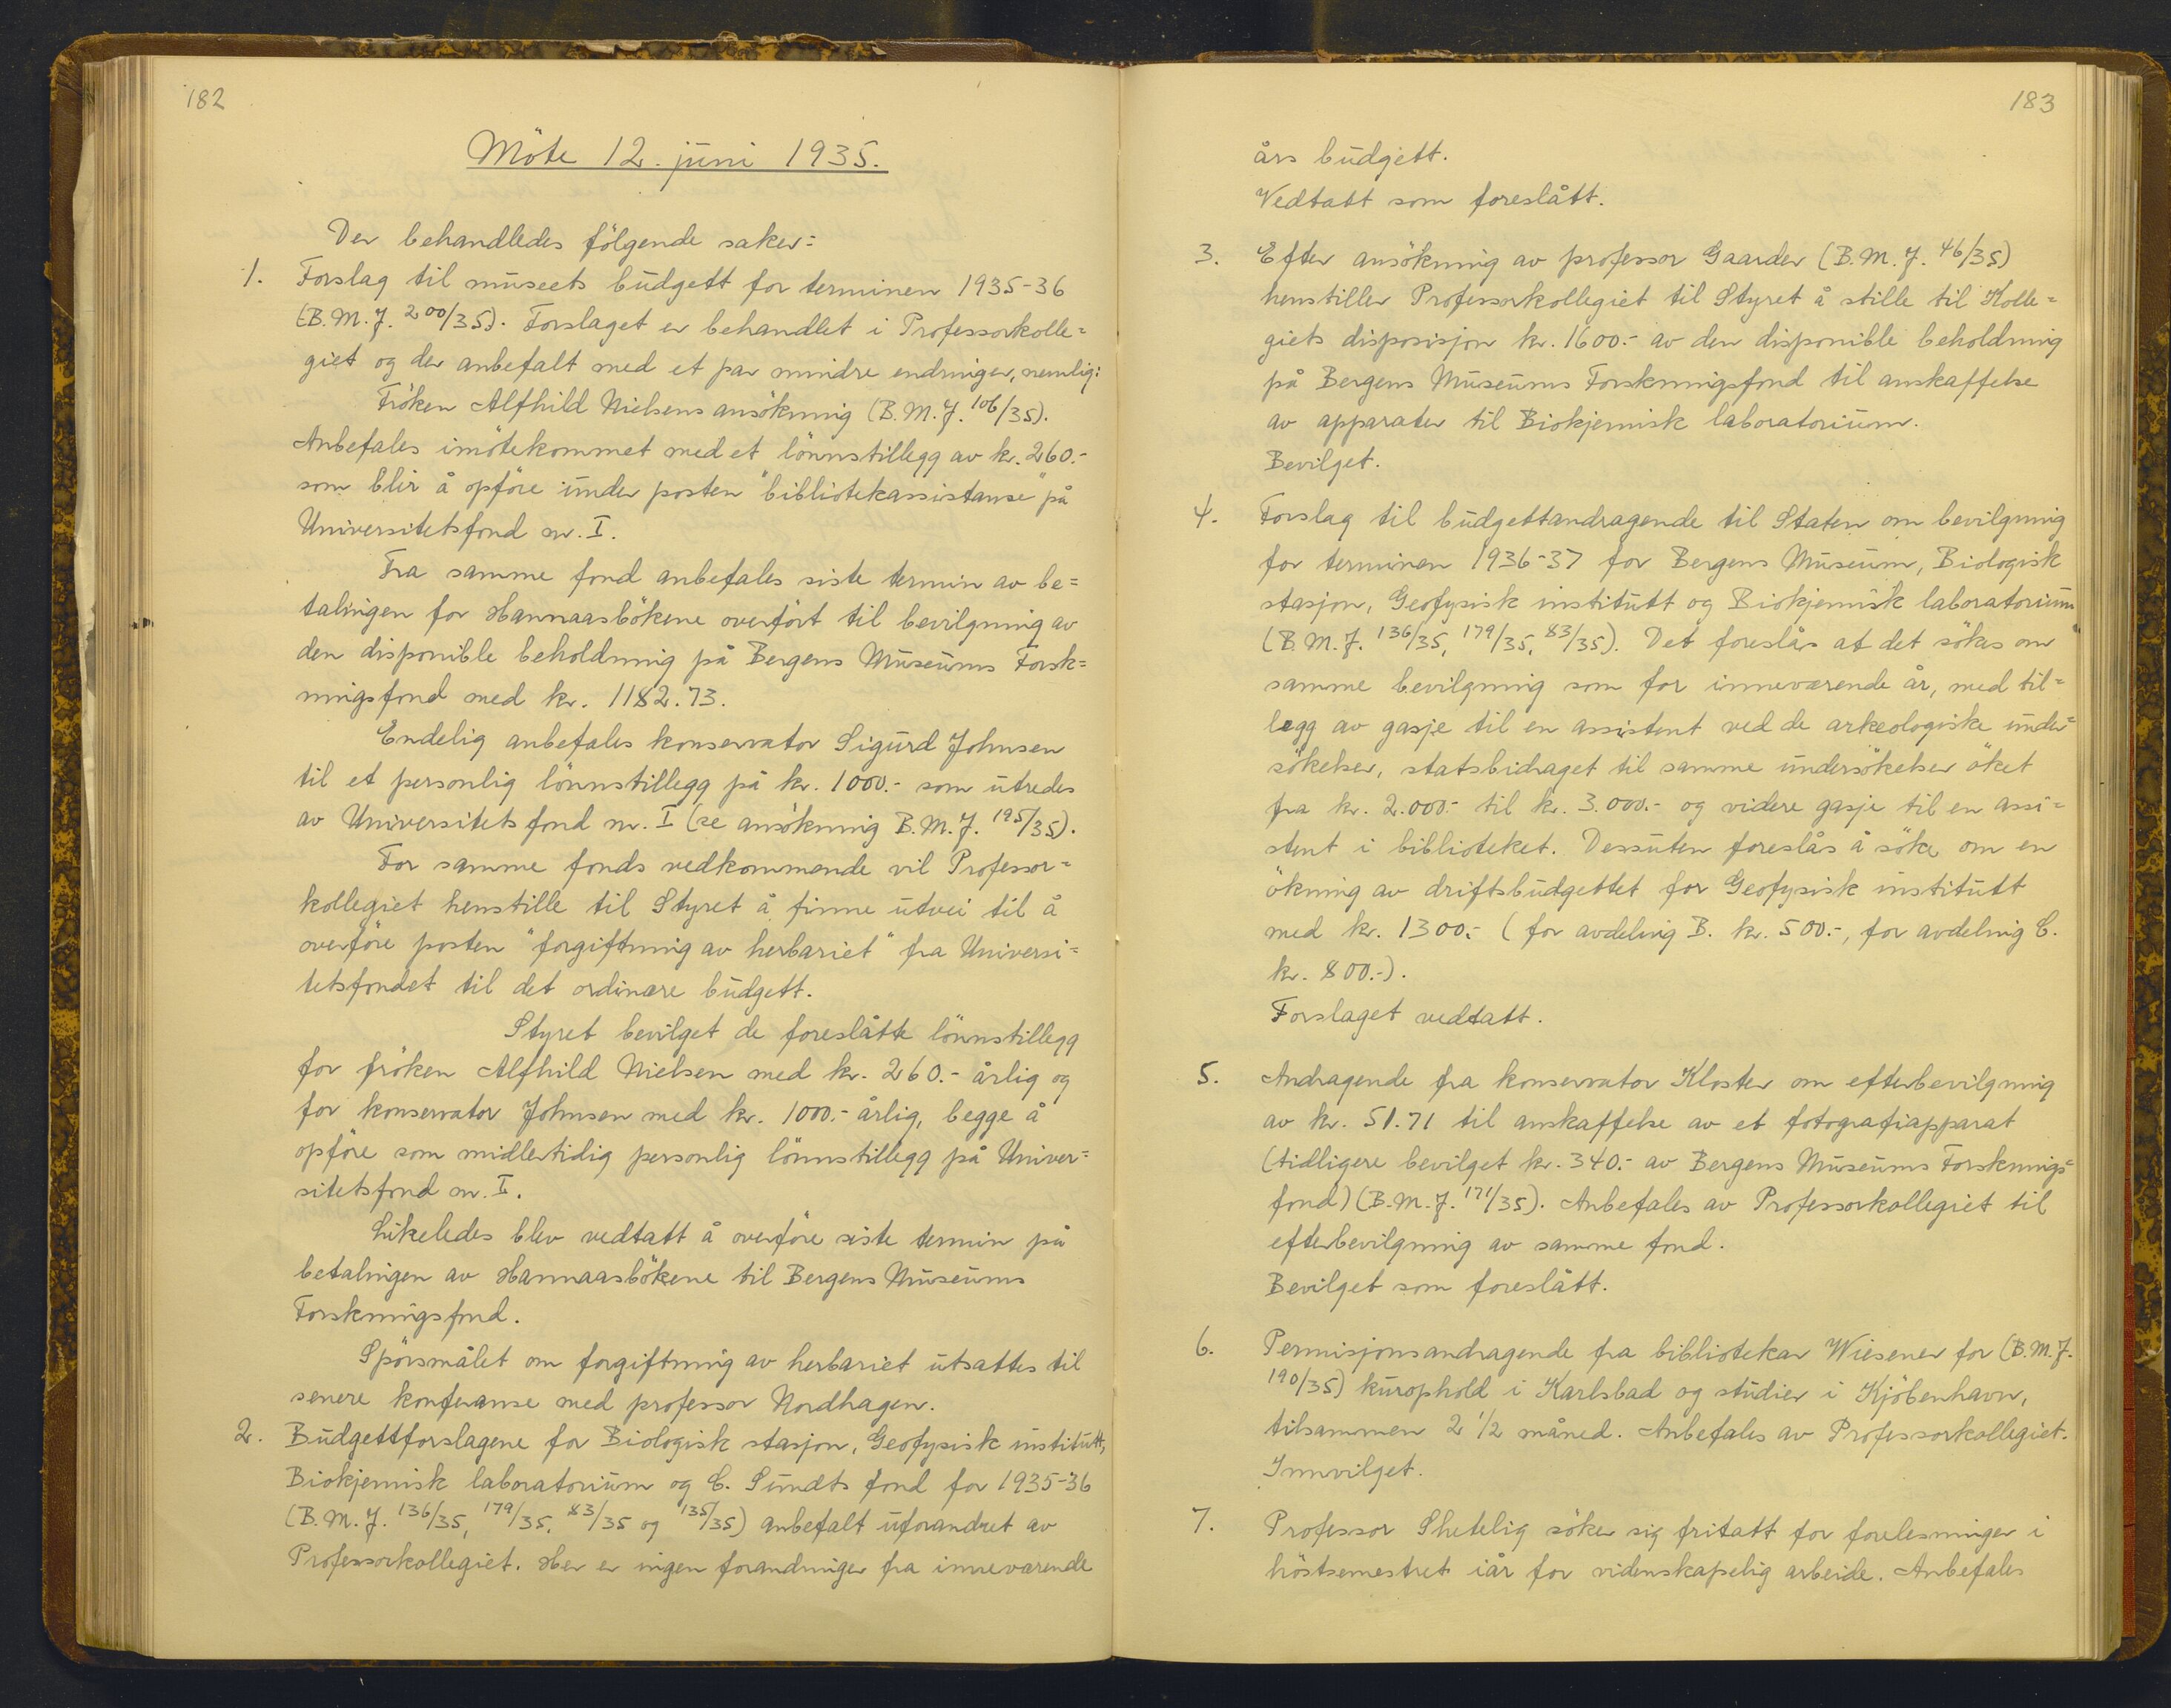 182
Möte 12. juni 1935.
Der behandledes fölgende saker:
1. Forslag til museets budgett for terminen 1935-36
(B.M.J. 200/35). Forslaget er behandlet i Professorkolle=
giet og der anbefalt med et par mindre endringer, nemlig:
Fröken Alfhild Nielsens ansökning (B.M.J. 106/35).
Anbefales imötekommet med et lönnstillegg av kr. 260.-
som blir å opföre under posten "bibliotekassistanse" på
Universitetsfond nr. I.
Fra samme fond anbefales siste termin av be=
talingen for Hannaasbökene overfört til bevilgning av
den disponible beholdning på Bergens Museums Forsk=
ningsfond med kr. 1182.73.
Endelig anbefales konservator Sigurd Johnsen
til et personlig lönnstillegg på kr. 1000.- som utredes
av Universitetsfond nr. I (se ansökning B.M.J. 195/35).
For samme fonds vedkommende vil Professor=
kollegiet henstille til Styret å finne utvei til å
overföre posten "forgiftning av herbariet" fra Universi=
tetsfondet til det ordinære budgett.
Styret bevilget de foreslåtte lönnstillegg
for fröken Alfhild Nielsen med kr. 260.- årlig og
for konservator Johnsen med kr. 1000.- årlig, begge å
opföre som midlertidig personlig lönnstillegg på Univer=
sitetsfond nr. I.
Likeledes blev vedtatt å overföre siste termin på
betalingen av Hannaasbökene til Bergens Museums
Forskningsfond.
Spörsmålet om forgiftning av herbariet utsattes til
senere konferanse med professor Nordhagen.
2. Budgettforslagene for Biologisk stasjon, Geofysisk institutt,
Biokjemisk laboratorium og C. Sundts fond for 1935-36
(B.M.J. 136/35, 179/35, 83/35 og 135/35) anbefalt uforandret av
Professorkollegiet. Her er ingen forandringer fra inneværende
183
års budgett.
Vedtatt som foreslått.
3. Efter ansökning av professor Gaarder (B.M.J. 46/35)
henstiller Professorkollegiet til Styret å stille til Kolle=
giets disposisjon kr. 1600.- av den disponible beholdning
på Bergens Museums Forskningsfond til anskaffelse
av apparater til Biokjemisk laboratorium.
Bevilget.
4. Forslag til budgettandragende til Staten om bevilgning
for terminen 1936-37 for Bergens Museum, Biologisk
stasjon, Geofysisk institutt og Biokjemisk laboratorium
(B.M.J. 136/35, 179/35, 83/35). Det foreslås at det sökes om
samme bevilgning som for inneværende år, med til=
legg av gasje til en assistent ved de arkeologiske under=
sökelser, statsbidraget til samme undersökelser öket
fra kr. 2.000.- til kr. 3.000.- og videre gasje til en assi=
stent i biblioteket. Dessuten foreslås å söke om en
ökning av driftsbudgettet for Geofysisk institutt
med kr. 1300.- (for avdeling B. kr. 500.-, for avdeling C.
kr. 800.-).
Forslaget vedtatt.
5. Andragende fra konservator Kloster om efterbevilgning
av kr. 51.71 til anskaffelse av et fotografiapparat
(tidligere bevilget kr. 340.- av Bergens Museums Forsknings=
fond) (B.M.J. 171/35). Anbefales av Professorkollegiet til
efterbevilgning av samme fond.
Bevilget som foreslått.
6. Permisjonsandragende fra bibliotekar Wiesener for (B.M.J.
190/35) kurophold i Karlsbad og studier i Kjöbenhavn,
tilsammen 2 1/2 måned. Anbefales av Professorkollegiet.
Innvilget.
7. Professor Shetelig söker sig fritatt for forelesninger i
höstsemestret iår for videnskapelig arbeide. Anbefales